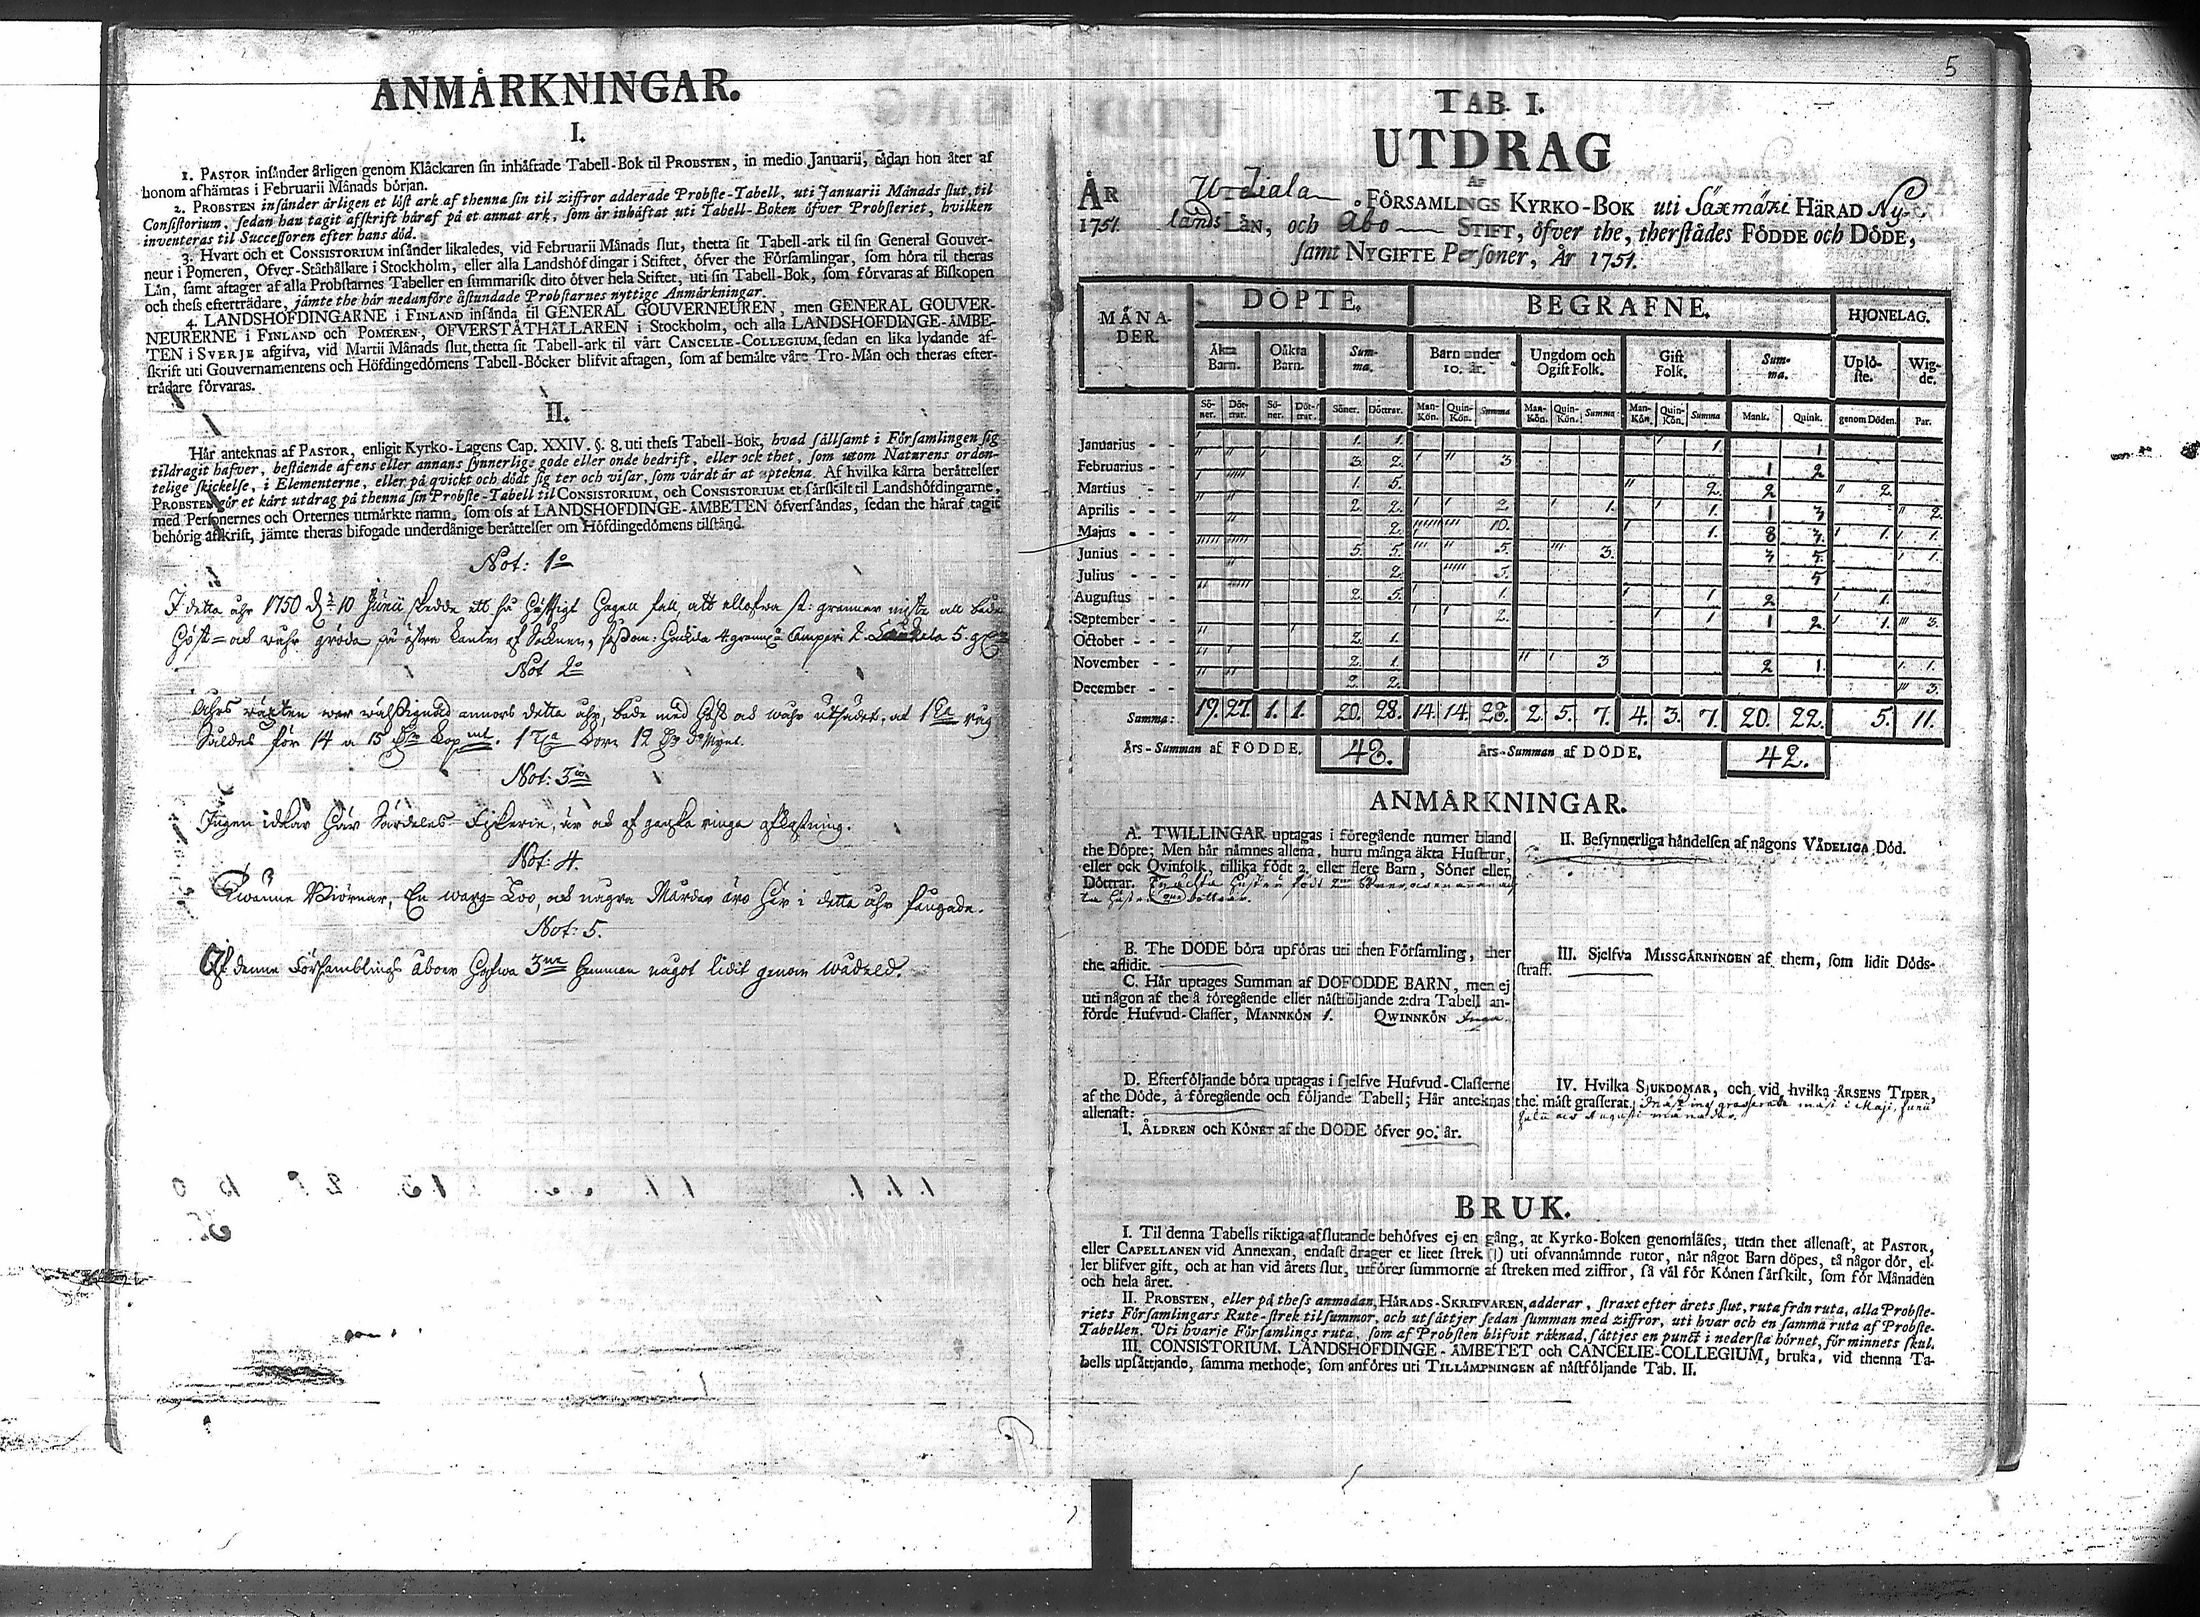 ANMÄRKNINGAR.
I.
1. PASTOR insånder årligen genom Klåckaren sin inhåftade Tabell-Bok til PROBSTEN, in medio Januarii, tådan hon åter af
honom afhämtas i Februarii Månads början.
2. PROBSTEN insånder årligen et löst ark af thenna sin til ziffror adderade Probste-Tabell, uti Januarii Månads slut, til
Consistorium, sedan han tagit afskrift håraf på et annat ark, som år inhåftat uti Tabell-Boken öfver Probsteriet, hvilken
inventeras til Successoren efter hans död.
3. Hvart och et CONSISTORIUM insånder likaledes, vid Februarii Månads slut, thetta sit Tabell-ark til sin General Gouver-
neur i Pomeren, Öfver-Ståthållare i Stockholm, eller alla Landshöfdingar i Stiftet, öfver the Församlingar, som höra til theras
Lån, samt aftager af alla Probstarnes Tabeller en summarisk dito öfver hela Stiftet, uti sin Tabell-Bok, som förvaras af Biskopen
och thess efterträdare, jämte the hår nedanföre åstundade Probstarnes nyttige Anmårkningar.
4. LANDSHÖFDINGARNE i FINLAND insånda til GENERAL GOUVERNEUREN, men GENERAL GOUVER-
NEURERNE i FINLAND och POMEREN, ÖFVERSTÅTHÅLLAREN i Stockholm, och alla LANDSHÖFDINGE-ÅMBE-
TEN i SVERJE afgifva, vid Martii Månads slut, thetta sit Tabell-ark til vårt CANCELIE-COLLEGIUM, sedan en lika lydande af-
skrift uti Gouvernamentens och Höfdingedömens Tabell-Böcker blifvit aftagen, som af bemålte våre Tro-Mån och theras efter-
trådare förvaras.
II.
Hår anteknas af PASTOR, enligit Kyrko-Lagens Cap. XXIV. §. 8. uti thess Tabell-Bok, hvad sållsamt i Församlingen sig
tildragit hafver, bestående af ens eller annans synnerlige gode eller onde bedrift, eller ock thet, som utom Naturens orden-
telige skickelse, i Elementerne, eller på qvickt och dödt sig ter och visar, som vårdt år at uptekna. Af hvilka kårta beråttelser
PROBSTEN gör et kårt utdrag på thenna sin Probste-Tabell til CONSISTORIUM, och CONSISTORIUM et sårskilt til Landshöfdingarne,
med Personernes och Orternes utmårkte namn, som oss af LANDSHÖFDINGE-ÅMBETEN öfversåndas, sedan the håraf tagit
behörig afskrift, jämte theras bifogade underdånige beråttelser om Höfdingedömens tilstånd.
Not: 1o
I detta åhr 1750 d. 10 Junii skedde ett så häftigt Hagell fall, att ellofwa st: grannar miste all bade
Höst- och wåhr gröda på östra kanten af Socknen,
Not 2o
Åhrs wäxten war wälsignad annors detta åhr, både med Höst och wåhr utsädet, at
Såldes för 14 a 15
Not: 3o
Ingen idkar här Särdeles Fiskerie, är och af ganska ringa afkastning.
Not: 4.
Twänne Biörnar, En warg Loo, och några Mårdar äro här i detta åhr fångade.
Not: 5.
Af denne Församblings åboer hafwa 3ne Hemman något lidit genom wådeld.
5
TAB. I.
UTDRAG
AF
ÅR Urdiala FÖRSAMLINGS KYRKO-BOK uti Säxmäki HÄRAD Ny-
1751. lands LÄN, och Åbo STIFT, öfver the, therstådes FÖDDE och DÖDE,
samt NYGIFTE Personer, År 1751.
MÅNA-DER. DÖPTE. BEGRAFNE. HJONELAG.
Åkta Barn. Oåkta Barn. Summa. Barn under 10. år. Ungdom och Ogift Folk. Gift Folk. Summa. Uplöste. Wigde.
Söner. Döttrar. Söner. Döttrar. Söner. Döttrar. Man-Kön. Quin-Kön. Summa Man-Kön. Quin-Kön. Summa Man-Kön. Quin-Kön. Summa Mank. Quink. genom Döden. Par.
Januarius - - 1. 1. 1. 1
Februarius - - 3. 2. 3 1 2
Martius - - 1. 5. 2. 2 2.
Aprilis - - 2. 2. 2. 1. 1. 1 3 2.
Majus - - 2. 10. 1. 8 3. 1. 1.
Junius - - 5. 5. 5. 3. 3 5. 1.
Julius - - 2. 5. 5
Augustus - - 2. 5. 1. 1 2 1.
September - - 2. 1 1 2. 1. 3.
October - - 2. 1.
November - - 2. 1. 3 2 1. 1.
December - - 2. 2. 3.
Summa: 19. 27. 1. 1. 20. 28. 14. 14. 28. 2. 5. 7. 4. 3. 7. 20. 22. 5. 11.
Års-Summan af FÖDDE. 48. Års-Summan af DÖDE. 42.
ANMÄRKNINGAR.
A. TWILLINGAR uptagas i föregående numer bland
the Döpte; Men hår nåmnes allena, huru många äkta Hustrur,
eller ock Qvinfolk, tillika födt 2. eller flere Barn, Söner eller
Döttrar.
B. The DÖDE böra upföras uti then Församling, ther
the aflidit.
C. Hår uptages Summan af DÖFÖDDE BARN, men ej
uti någon af the å föregående eller nåstföljande 2:dra Tabell an-
förde Hufvud-Classer, MANNKÖN 1. QWINNKÖN Inga.
D. Efterföljande böra uptagas i sjelfve Hufvud-Classerne
af the Döde, å föregående och följande Tabell; Hår anteknas
allenast:
I. ÅLDREN och KÖNET af the DÖDE öfver 90. år.
II. Besynnerliga håndelsen af någons VÅDELIGA Död.
III. Sjelfva MISSGÅRNINGEN af them, som lidit Döds-
straff.
IV. Hvilka SJUKDOMAR, och vid hvilka ÅRSENS TIDER,
the måst grasserat. Mässling grasserade mäst i Maji, Junii
Julii och Augusti månader.
BRUK.
I. Til denna Tabells riktiga afslutande behöfves ej en gång, at Kyrko-Boken genomlåses, utan thet allenast, at PASTOR,
eller CAPELLANEN vid Annexan, endast drager et litet strek (|) uti ofvannåmnde rutor, når något Barn döpes, tå någor dör, el-
ler blifver gift, och at han vid årets slut, utförer summorne af streken med ziffror, så vål för Könen sårskilt, som för Månaden
och hela året.
II. PROBSTEN, eller på thess anmodan, HÅRADS-SKRIFVAREN, adderar, straxt efter årets slut, ruta från ruta, alla Probste-
riets Församlingars Rute-strek til summor, och utsåttjer sedan summan med ziffror, uti hvar och en samma ruta af Probste-
Tabellen. Uti hvarje Församlings ruta, som af Probsten blifvit råknad, såttjes en punct i nedersta hörnet, för minnets skul.
III. CONSISTORIUM, LANDSHÖFDINGE-ÅMBETET och CANCELIE-COLLEGIUM, bruka, vid thenna Ta-
bells upsåttjande, samma methode, som anföres uti TILLÅMPNINGEN af nåstföljande Tab. II.